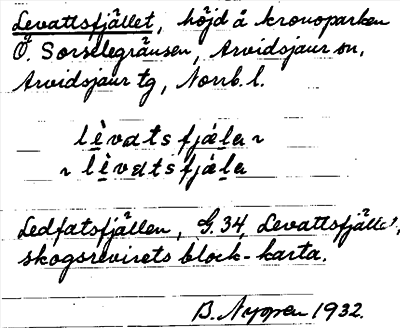 Levattsfjället, höjd å kronoparken
Ö. Sorselegränsen, Arvidsjaur sn,
Arvidsjaur tg, Norrb. l.
lèvatsfjäla ~
~ lèvatsfjäla
Ledfatsfjällen, G. 34, Levattsfjälle',
skogsrevirets block-karta.
B. Nygren 1932.